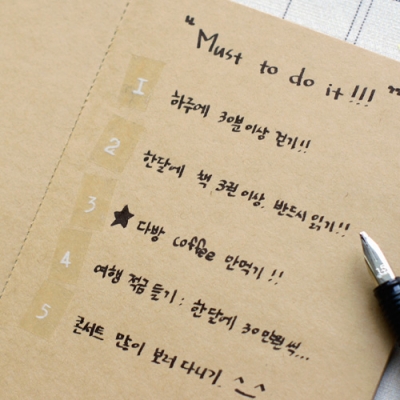 "Must to do it!!!"
1 하루에 30분이상 걷기!!
2 한달에 책 3권이상. 반드시 읽기!!
3 ★ 다방 coffee 안먹기!!
4 여행 적금 듣기 : 한달에 30만원씩...
5 콘서트 많이 보러 다니기. ^_^